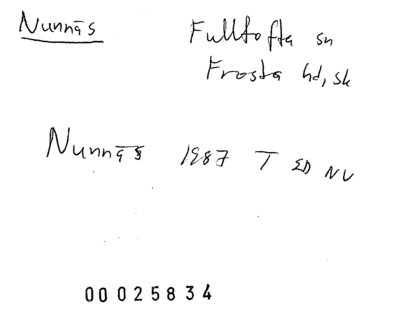 Nunnäs
Fulltofta sn
Frosta hd, sk
Nunnäs 1987 T ED NV
00025834